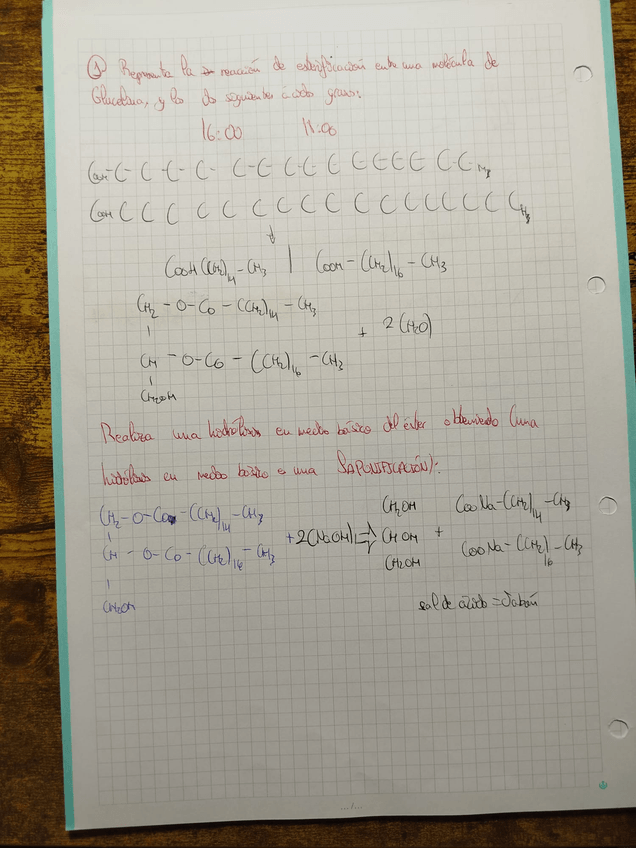 ① Representa la reacción de esterificación entre una molécula de
Glucelina, y los dos siguientes ácidos grasos:
16:00 18:00
COOH-C-C-C-C-C-C-C-C-C-C-C-C-C-C-CH3
COOH C C C C C C C C C C C C C C C CH3
↓
COOH(CH2)14-CH3 | COOH-(CH2)16-CH3
CH2-O-CO-(CH2)14-CH3
| + 2(H2O)
CH-O-CO-(CH2)16-CH3
|
CH2OH
Realiza una hidrólisis en medio básico del éster obtenido (una
hidrólisis en medio básico es una SAPONIFICACIÓN):
CH2-O-CO-(CH2)14-CH3 CH2OH COONa-(CH2)14-CH3
|
CH-O-CO-(CH2)16-CH3 +2(NaOH) ⇒ CHOH + COONa-(CH2)16-CH3
| CH2OH
CH2OH sal de ácido = Jabón